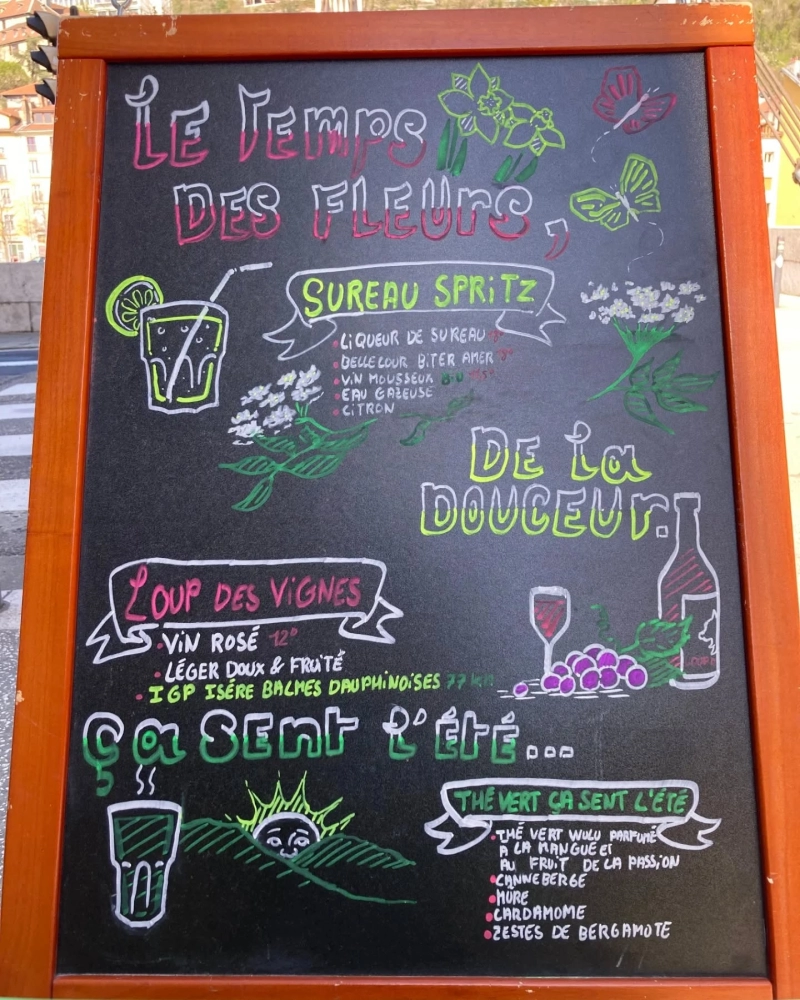 Le Temps
des Fleurs,
Sureau Spritz
Liqueur de Sureau
Bellecour Biter Amer
Vin Mousseux Bio
Eau Gazeuse
Citron
De la
Douceur.
Loup des Vignes
Vin Rosé 12°
Léger Doux & Fruité
IGP Isére Balmes Dauphinoises 77 km
Ça sent l'été...
Thé Vert Ça Sent l'Été
Thé Vert Wulu Parfumé
à la Mangue et
au Fruit de la Passion
Canneberge
Mûre
Cardamome
Zestes de Bergamote